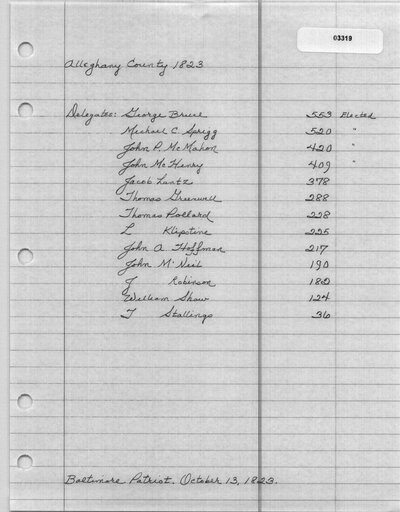 03319
Alleghany County 1823
Delegates: George Bruce 553 Elected
Michael C. Sprigg 520 "
John P. McMahon 420 "
John McHenry 409 "
Jacob Lantz 378
Thomas Greenwell 288
Thomas Pollard 228
L Klipstine 225
John A Hoffman 217
John McNeil 190
J Robinson 182
William Shaw 124
T Stallings 36
Baltimore Patriot. October 13, 1823.